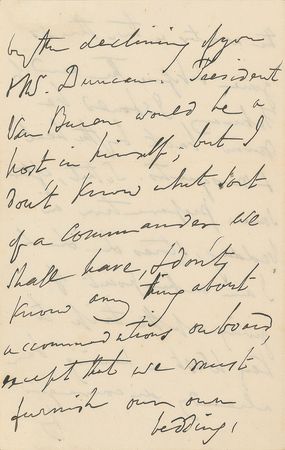 by the declining of you
& Mr. Duncan. President
Van Buren would be a
host in himself; but I
don't know what sort
of a commander we
shall have, & don't
know any thing about
accommodations on board,
except that we must
furnish our own
bedding,